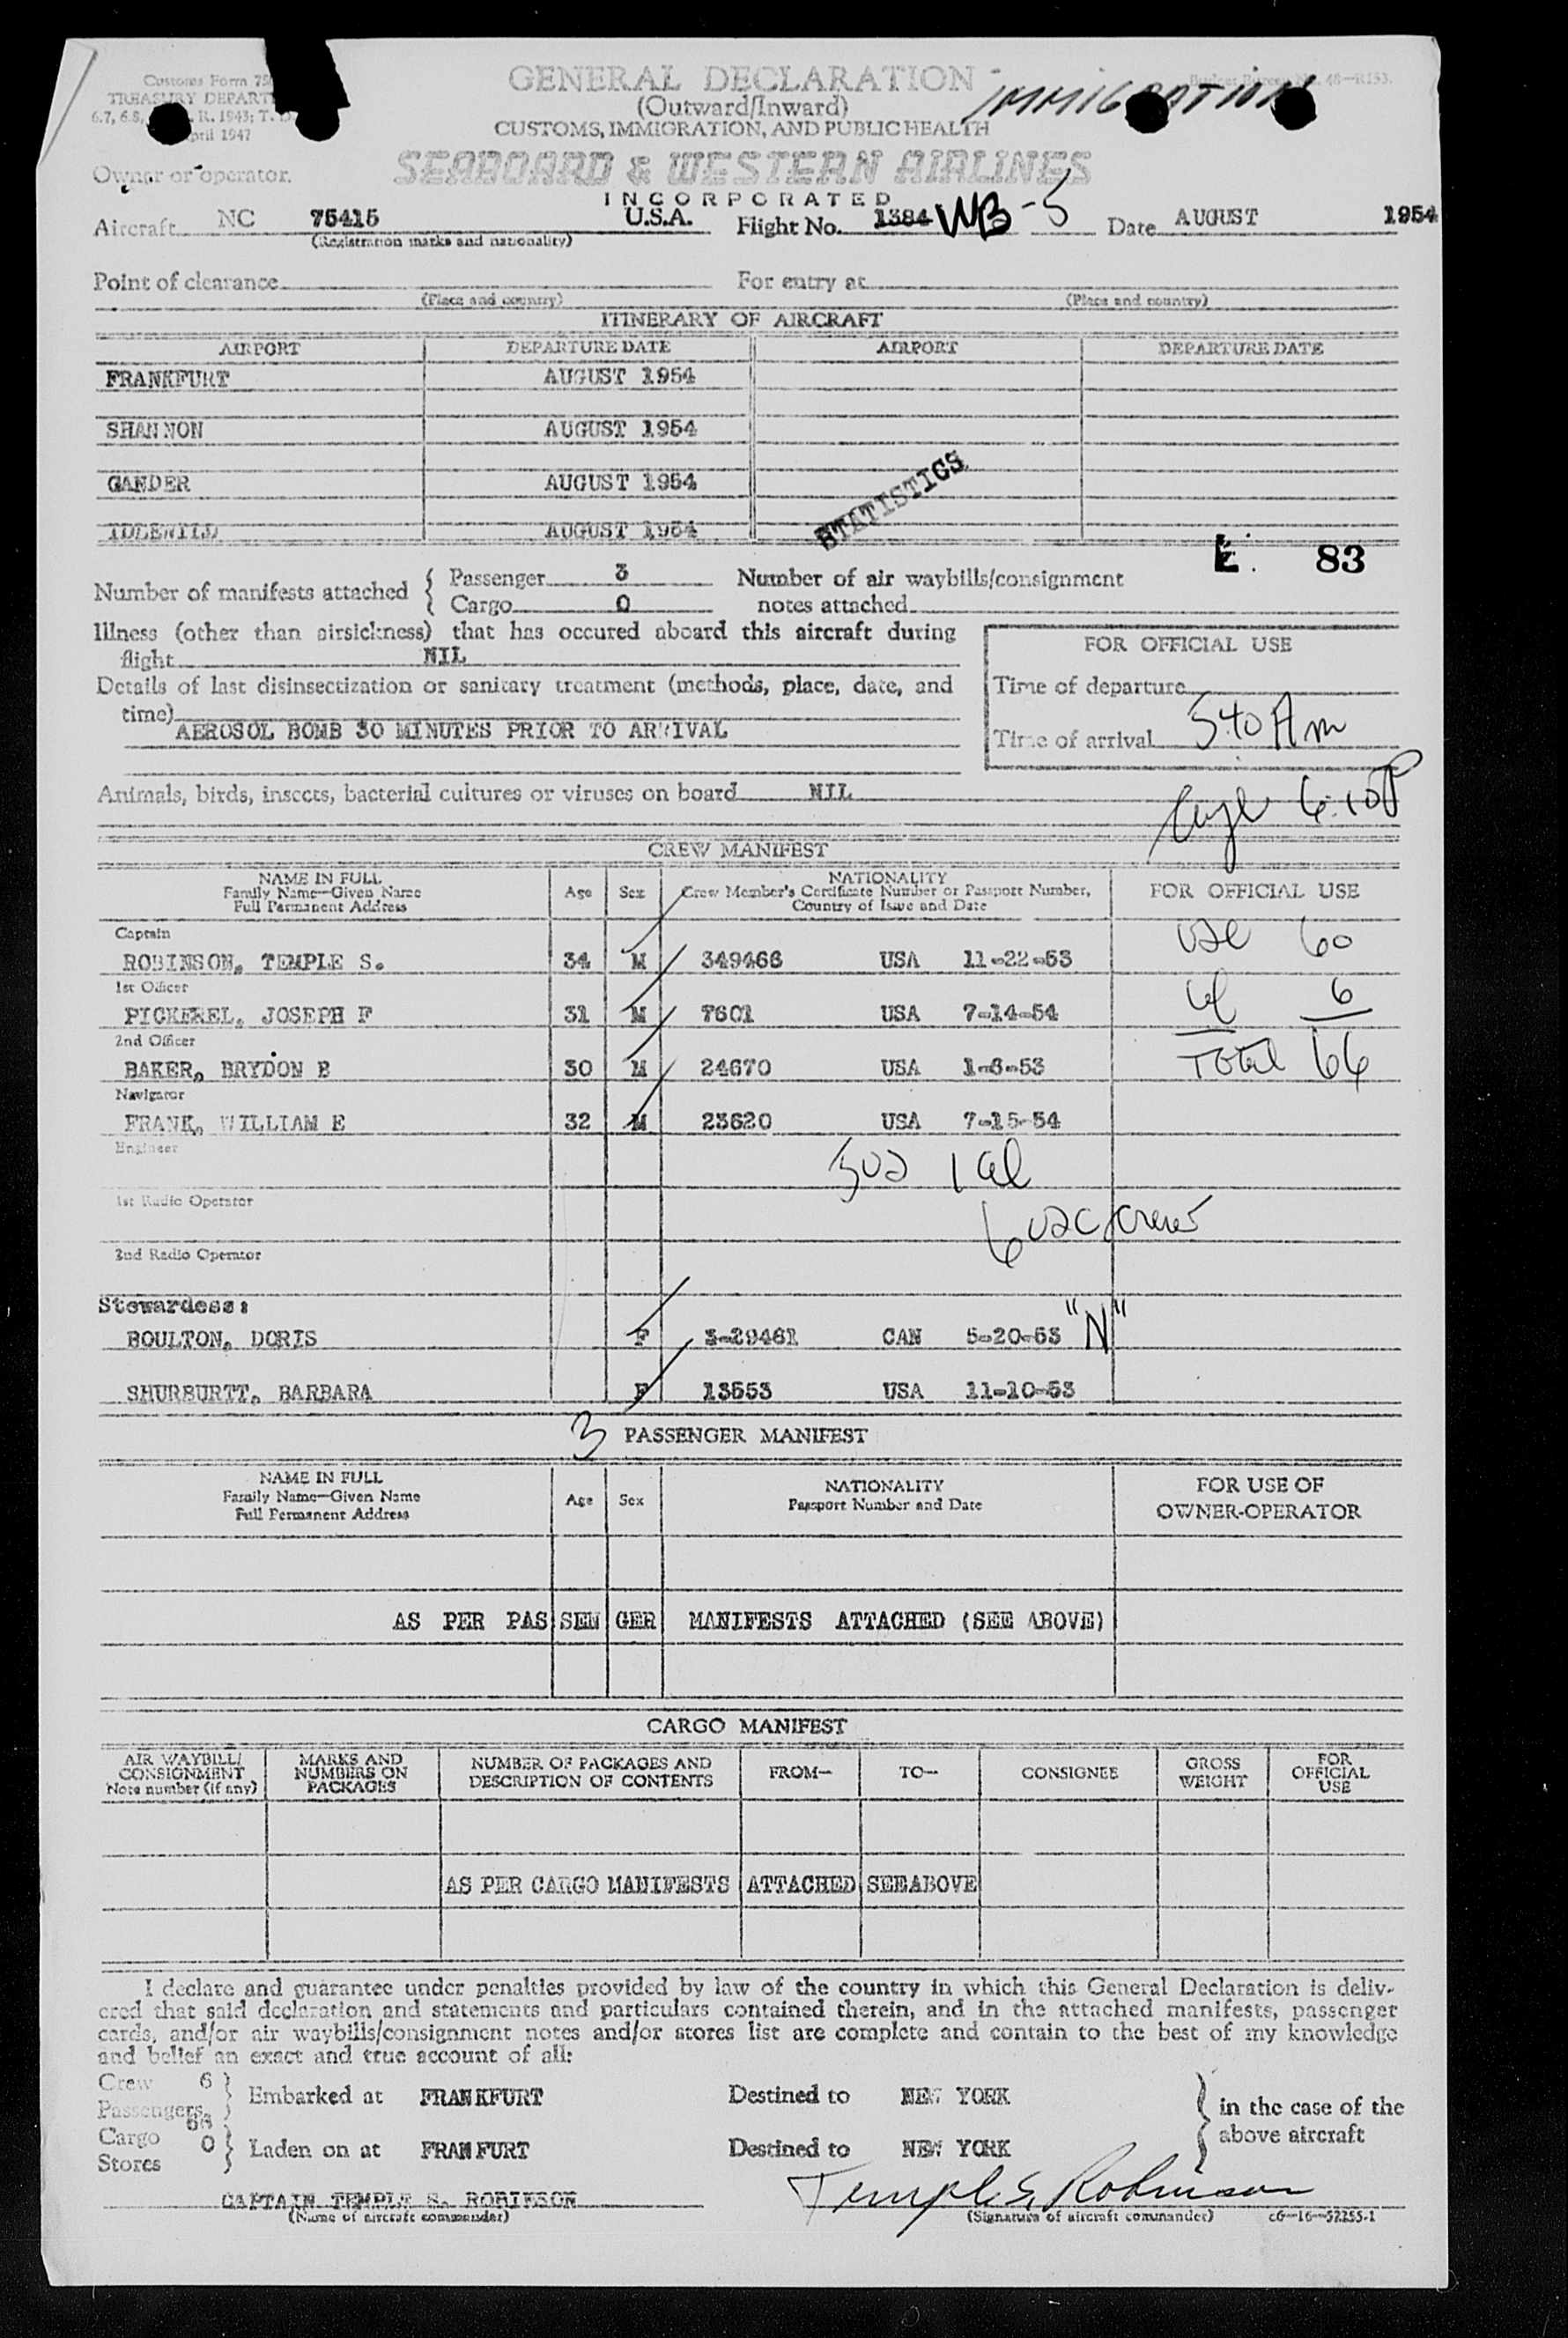 Customs Form 75
TREASURY DEPART
6.7, 6.8, R. 1943; T. D
pril 1947
GENERAL DECLARATION
(Outward/Inward)
CUSTOMS, IMMIGRATION, AND PUBLIC HEALTH
IMMIGRATION
48—R153.
Owner or operator.
SEABOARD & WESTERN AIRLINES
INCORPORATED
Aircraft NC 75415 U.S.A. Flight No. 1384 WB-5 Date AUGUST 1954
(Registration marks and nationality)
Point of clearance For entry at
(Place and country) (Place and country)
ITINERARY OF AIRCRAFT
AIRPORT DEPARTURE DATE AIRPORT DEPARTURE DATE
FRANKFURT AUGUST 1954
SHANNON AUGUST 1954
GANDER AUGUST 1954
STATISTICS
IDLEWILD AUGUST 1954
E. 83
Number of manifests attached { Passenger 3 Number of air waybills/consignment
Cargo 0 notes attached
Illness (other than airsickness) that has occured aboard this aircraft during
flight NIL
FOR OFFICIAL USE
Details of last disinsectization or sanitary treatment (methods, place, date, and
time)
Time of departure
AEROSOL BOMB 30 MINUTES PRIOR TO ARRIVAL
Time of arrival 540 Am
Animals, birds, insects, bacterial cultures or viruses on board NIL
6:10P
CREW MANIFEST
NAME IN FULL
Family Name—Given Name
Full Permanent Address
Age Sex
NATIONALITY
Crew Member's Certificate Number or Passport Number,
Country of Issue and Date
FOR OFFICIAL USE
Captain
ROBINSON, TEMPLE S. 34 M 349466 USA 11-22-53
USC 60
1st Officer
PICKEREL, JOSEPH F 31 M 7601 USA 7-14-54
al 6
2nd Officer
BAKER, BRYDON E 30 M 24670 USA 1-6-53
Total 66
Navigator
FRANK, WILLIAM E 32 M 23620 USA 7-15-54
Engineer
1 al
1st Radio Operator
6 USC crew
2nd Radio Operator
Stewardess:
BOULTON, DORIS F 3-29461 CAN 5-20-53 "N"
SHURBURTT, BARBARA F 13553 USA 11-10-53
3 PASSENGER MANIFEST
NAME IN FULL
Family Name—Given Name
Full Permanent Address
Age Sex
NATIONALITY
Passport Number and Date
FOR USE OF
OWNER-OPERATOR
AS PER PASSENGER MANIFESTS ATTACHED (SEE ABOVE)
CARGO MANIFEST
AIR WAYBILL/
CONSIGNMENT
Note number (if any)
MARKS AND
NUMBERS ON
PACKAGES
NUMBER OF PACKAGES AND
DESCRIPTION OF CONTENTS
FROM—
TO—
CONSIGNEE
GROSS
WEIGHT
FOR
OFFICIAL
USE
AS PER CARGO MANIFESTS ATTACHED SEEABOVE
I declare and guarantee under penalties provided by law of the country in which this General Declaration is deliv-
ered that said declaration and statements and particulars contained therein, and in the attached manifests, passenger
cards, and/or air waybills/consignment notes and/or stores list are complete and contain to the best of my knowledge
and belief an exact and true account of all:
Crew 6 } Embarked at FRANKFURT Destined to NEW YORK
Passengers 66
in the case of the
above aircraft
Cargo 0 } Laden on at FRANFURT Destined to NEW YORK
Stores
CAPTAIN TEMPLE S. ROBINSON Temple S. Robinson
(Name of aircraft commander) (Signature of aircraft commander) c6—16—52255-1